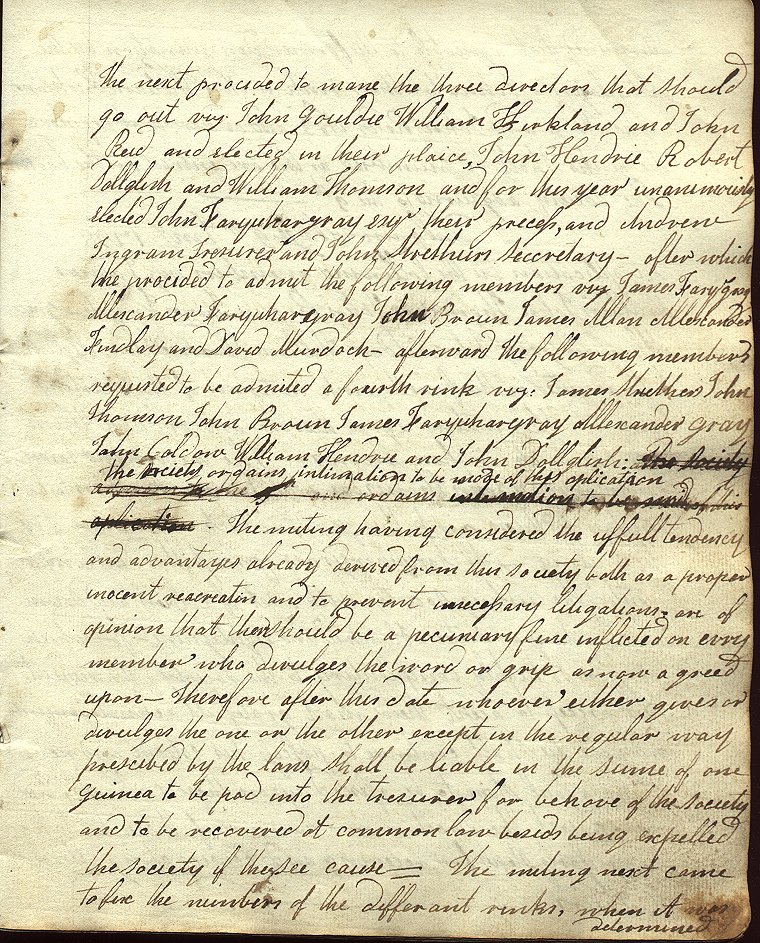 the next procided to mane the three directors that should
go out viz John Gouldie William Kirkland and John
Reid and elected in their plaice, John Hendrie Robert
Dollglish and William Thomson and for this year unanimously
elected John Farquhargray esqr their preces, and Andrew
Ingram Tresurer and John Struthers secretary – after which
the procided to admit the following members viz James Farqr gray
Allexcander Farquhargray John Broun James Allan Allexcander
Findlay and David Murdoch – afterward the following members
requsted to be admited a fourth rink viz: James Struthers John
Thomson John Broun James Farquhargray Allexcander gray
John Coldow William Hendrie and John Dollglish: The Society
The Society ordains intimation to be made of this aplication
and ordains intimation to be made of this
aplication. The miting having considered the usffull tendency
and advantages already derived from this society both as a proper
inocent reacreatin and to prevent unnecessary litigations, are of
opinion that ther should be a pecuniary fine inflicted on evry
member who divulges the word or grip as now a greed
upon – Therefore after this date whoever either gives or
divulges the one or the other except in the regular way
prescibed by the laws shall be liable in the sume of one
Guinea to be pad into the tresurer for behove of the society
and to be recovered at common law besids being expelled
the society if they see cause = The miting next came
to fix the numbers of the differant rinks, when it was
determined